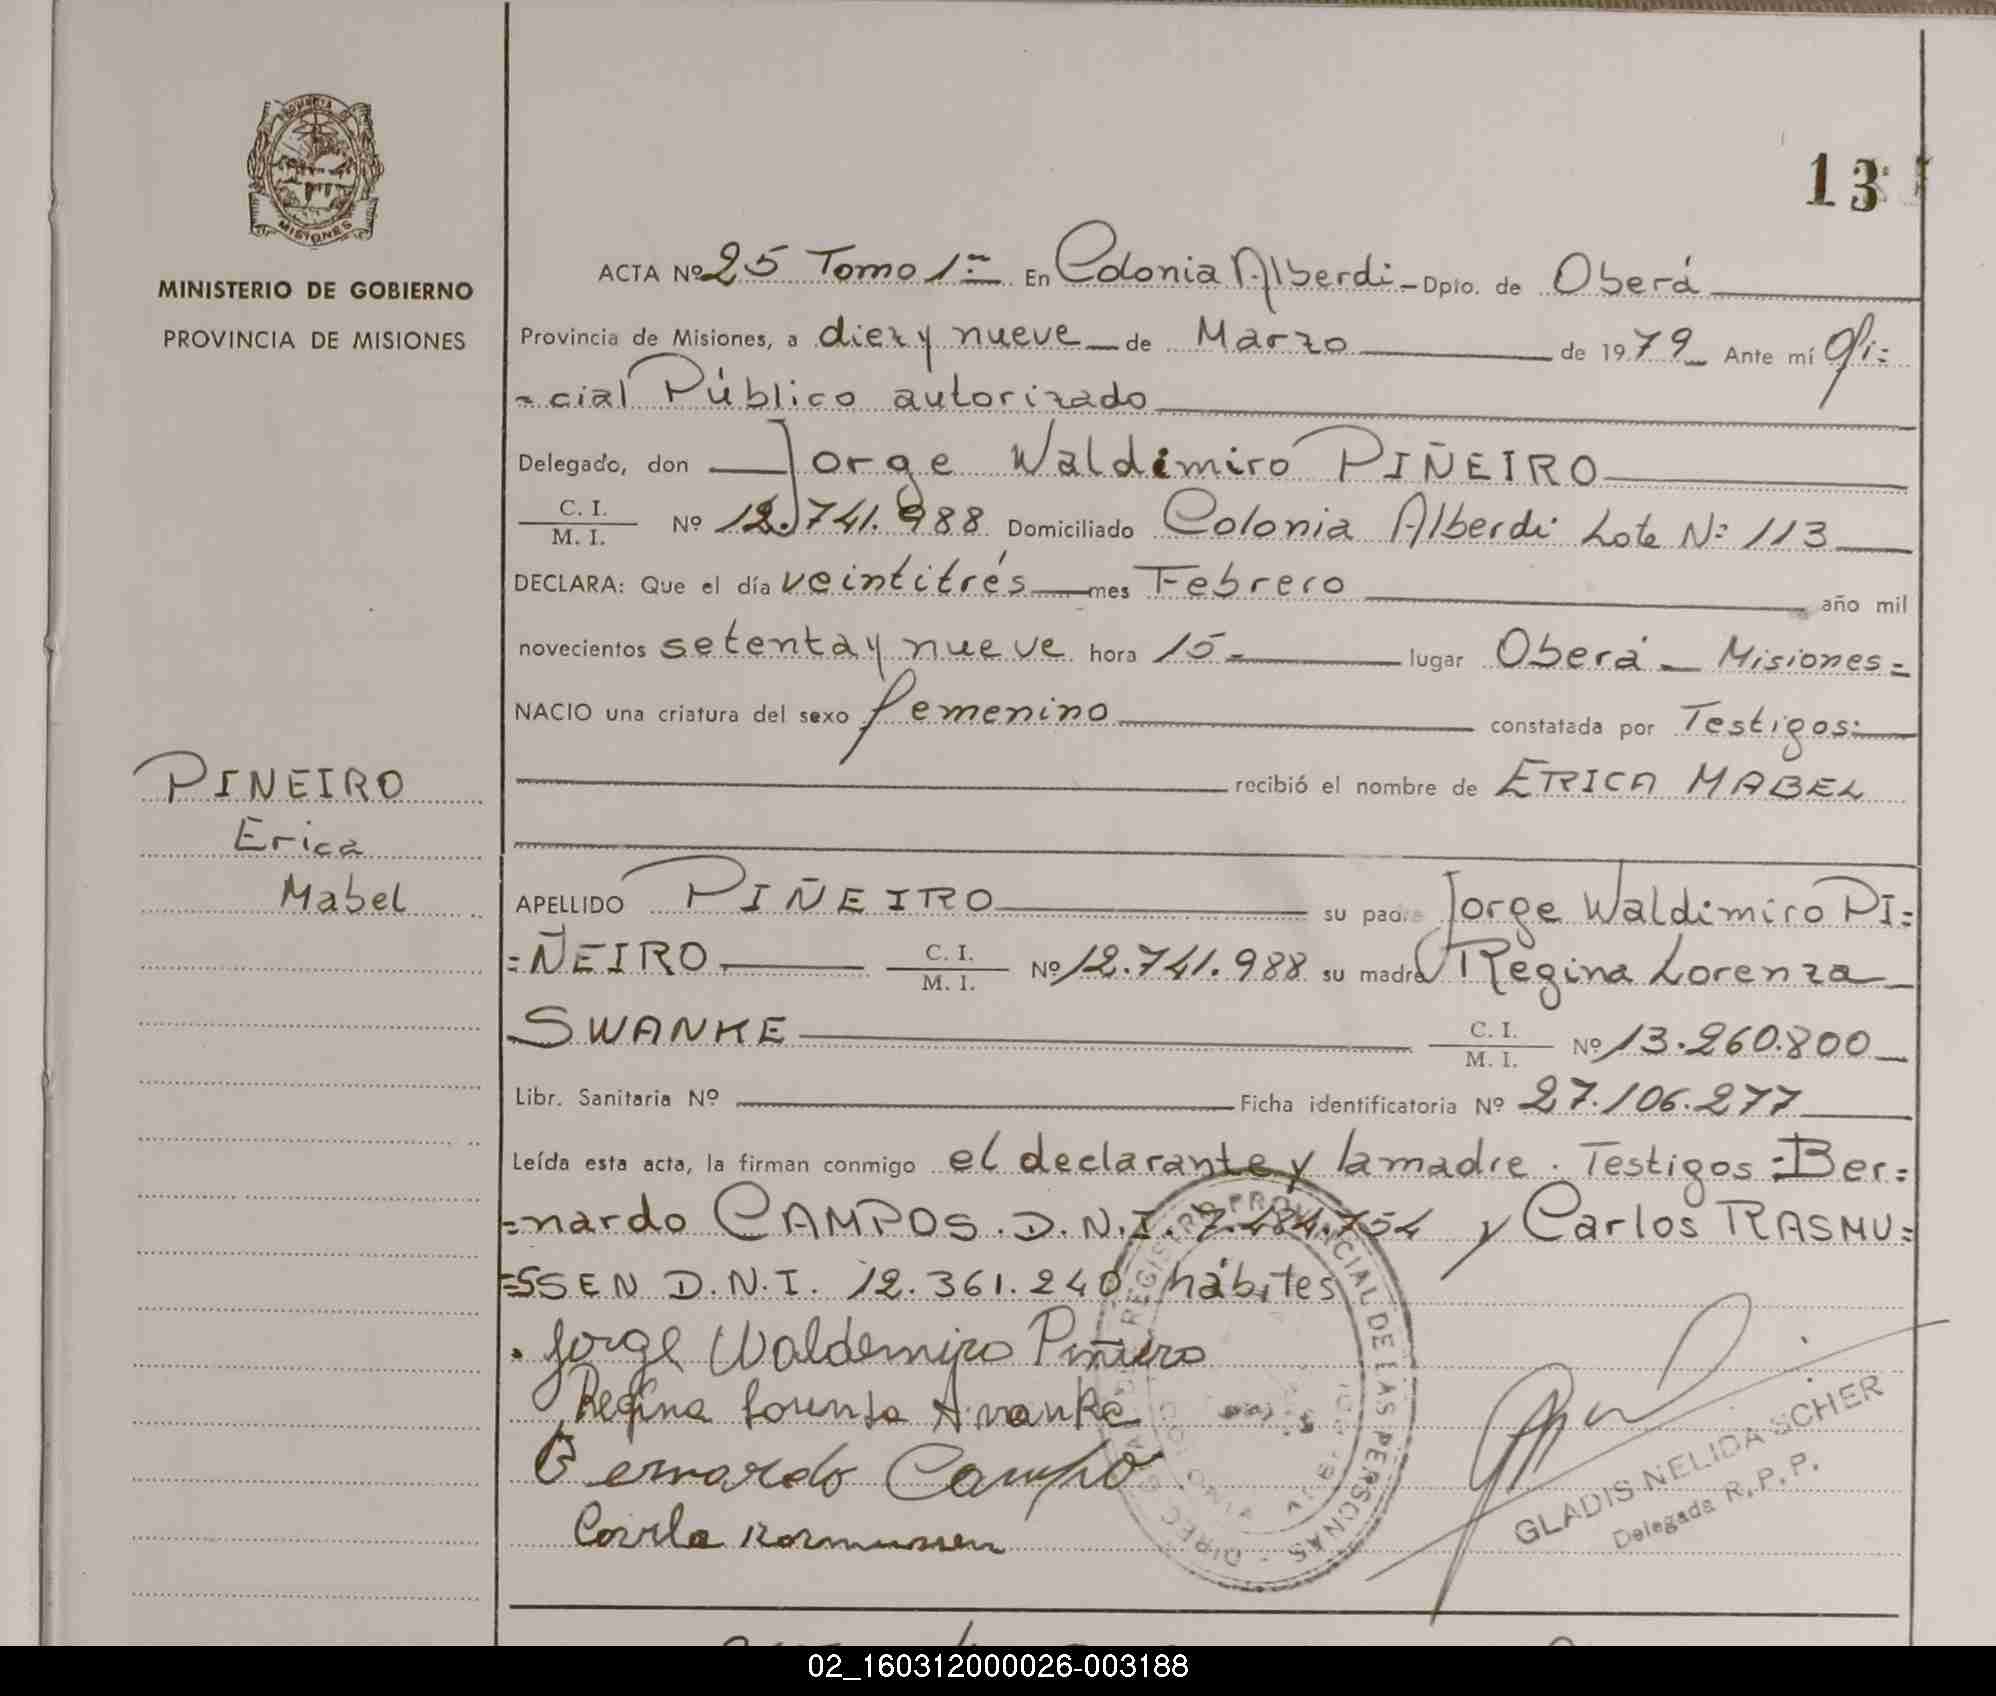 13
MINISTERIO DE GOBIERNO
PROVINCIA DE MISIONES
ACTA Nº 25 Tomo 1º En Colonia Alberdi - Dpto. de Oberá
Provincia de Misiones, a diez y nueve de Marzo de 1979 Ante mí Ofi=
=cial Público autorizado
Delegado, don Jorge Waldimiro PIÑEIRO
C. I.
M. I. Nº 12.741.988 Domiciliado Colonia Alberdi Lote Nº 113
DECLARA: Que el día veintitrés mes Febrero año mil
novecientos setenta y nueve hora 15 - lugar Oberá - Misiones =
NACIO una criatura del sexo femenino constatada por Testigos:
recibió el nombre de ERICA MABEL
PINEIRO
Erica
Mabel
APELLIDO PIÑEIRO su padre Jorge Waldimiro PI=
=ÑEIRO C. I. M. I. Nº 12.741.988 su madre Regina Lorenza
SWANKE C. I. M. I. Nº 13.260.800
Libr. Sanitaria Nº Ficha identificatoria Nº 27.106.277
Leída esta acta, la firman conmigo el declarante y la madre. Testigos: Ber=
=nardo CAMPOS. D.N.I. 7.484.754 y Carlos RASMU=
=SSEN D.N.I. 12.361.240 hábites
Jorge Waldemiro Piñeiro
Regina Lorenza Swanke
Bernardo Campo
Carlo Rasmussen
REGISTRO PROVINCIAL DE LAS PERSONAS - DIREC
COLONIA ALBERDI
GLADIS NELIDA SCHER
Delegada R. P. P.
02_160312000026-003188